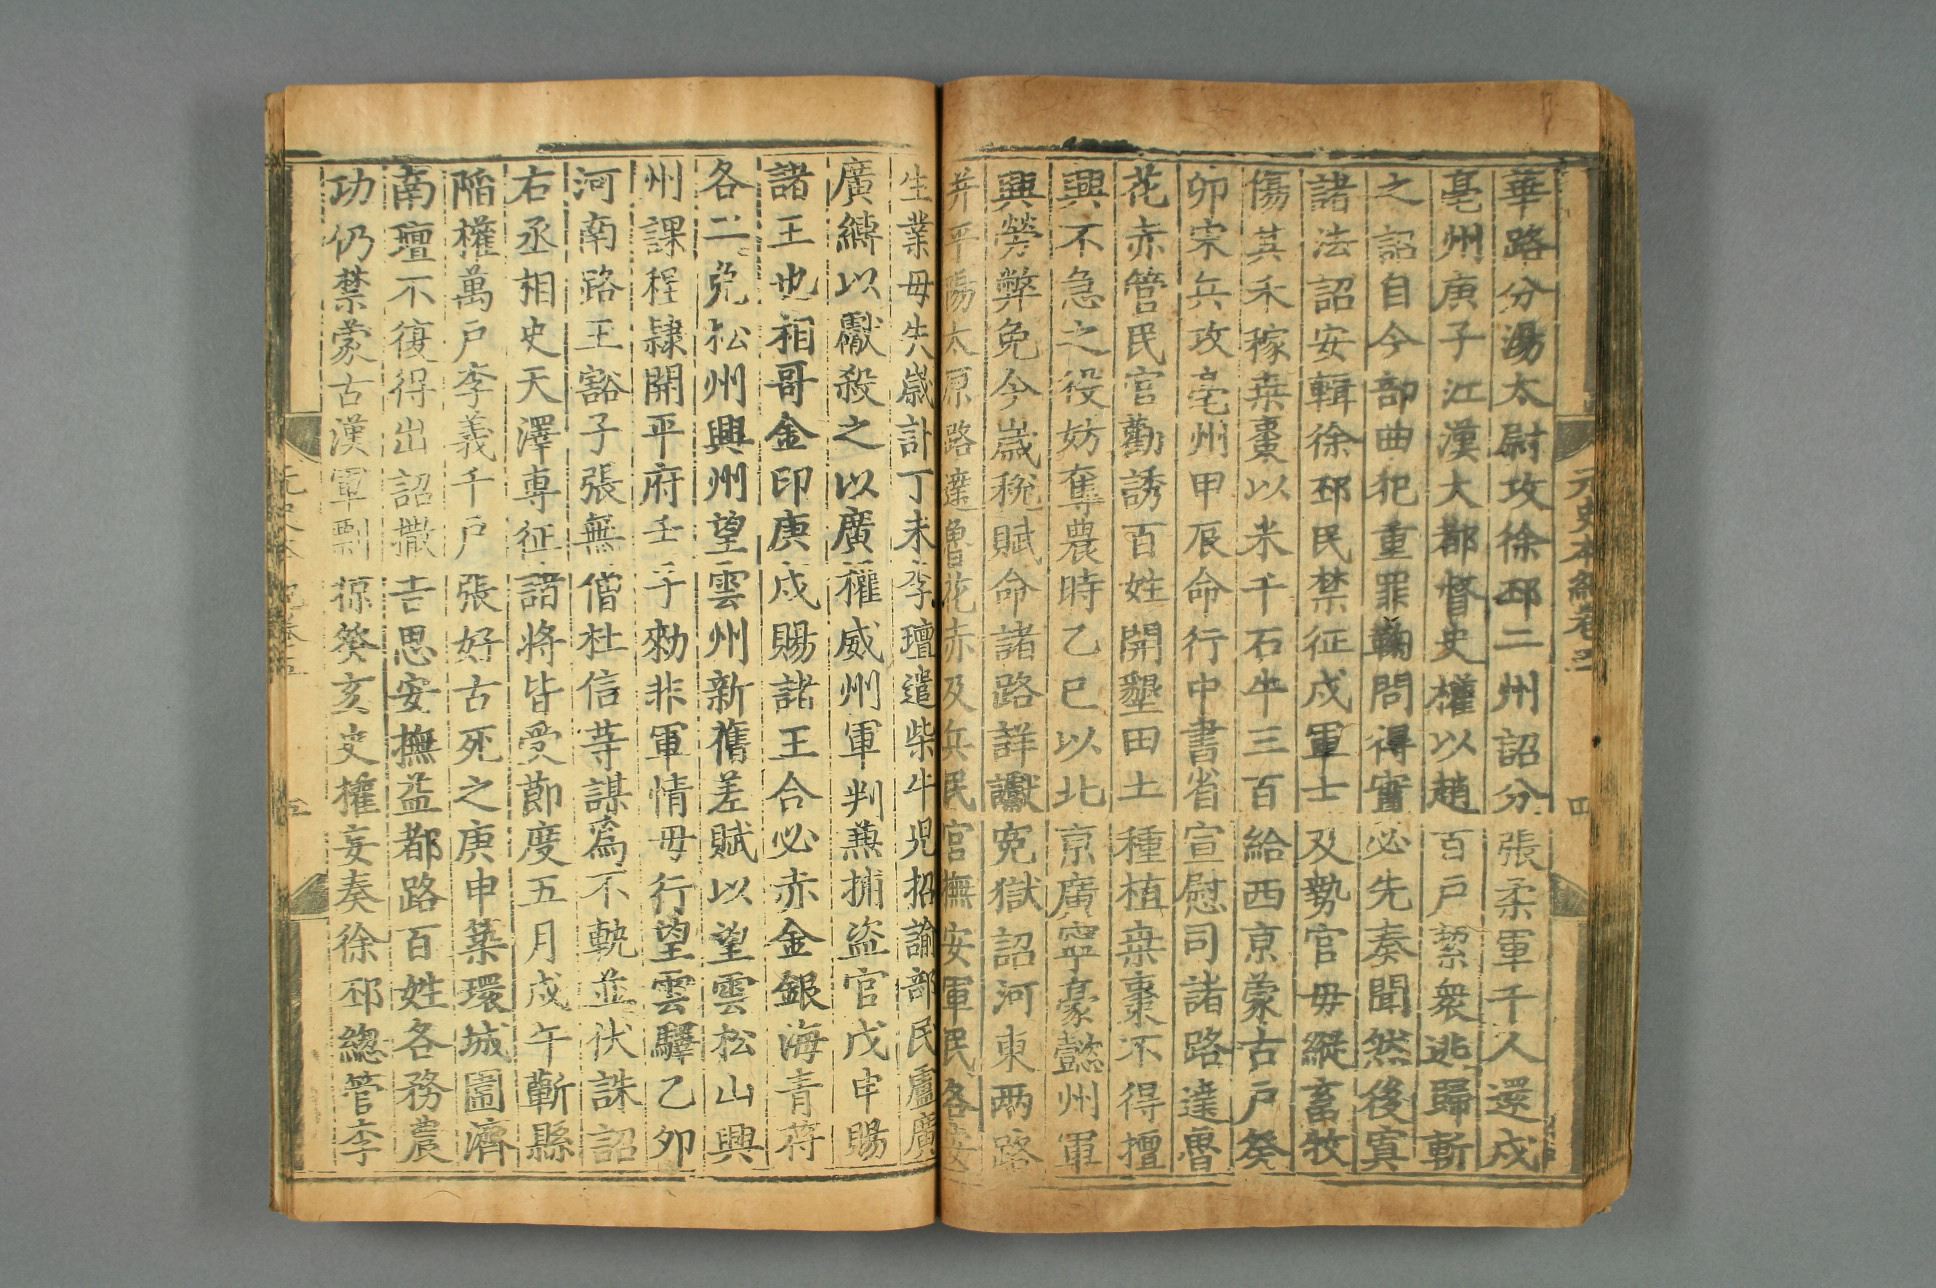 元史本紀卷五 四
華路分湯太尉攻徐邳二州詔分張柔軍千人還戍
亳州庚子江漢大都督史權以趙百戶絜衆逃歸斬
之詔自今部曲犯重罪鞫問得實必先奏聞然後寘
諸法詔安輯徐邳民禁征戍軍士及勢官毋縱畜牧
傷其禾稼桑棗以米千石牛三百給西京蒙古戶癸
卯宋兵攻亳州甲辰命行中書省宣慰司諸路達魯
花赤管民官勸誘百姓開墾田土種植桑棗不得擅
興不急之役妨奪農時乙巳以北京廣寧豪懿州軍
興勞弊免今歲稅賦命諸路詳讞冤獄詔河東兩路
并平陽太原路達魯花赤及兵民官撫安軍民各安
生業毋失歲計丁未李璮遣柴牛児招諭部民盧廣
廣縛以獻殺之以廣權威州軍判兼捕盜官戊申賜
諸王也相哥金印庚戌賜諸王合必赤金銀海青符
各二免松州興州望雲州新舊差賦以望雲松山興
州課程隷開平府壬子勑非軍情毋行望雲驛乙夘
河南路王豁子張無僧杜信等謀爲不軌並伏誅詔
右丞相史天澤專征諸將皆受節度五月戊午蘄縣
陷權萬戶李義千戶張好古死之庚申築環城圍濟
南璮不復得出詔撒吉思安撫益都路百姓各務農
功仍禁蒙古漢軍剽掠癸亥史權妄奏徐邳總管李